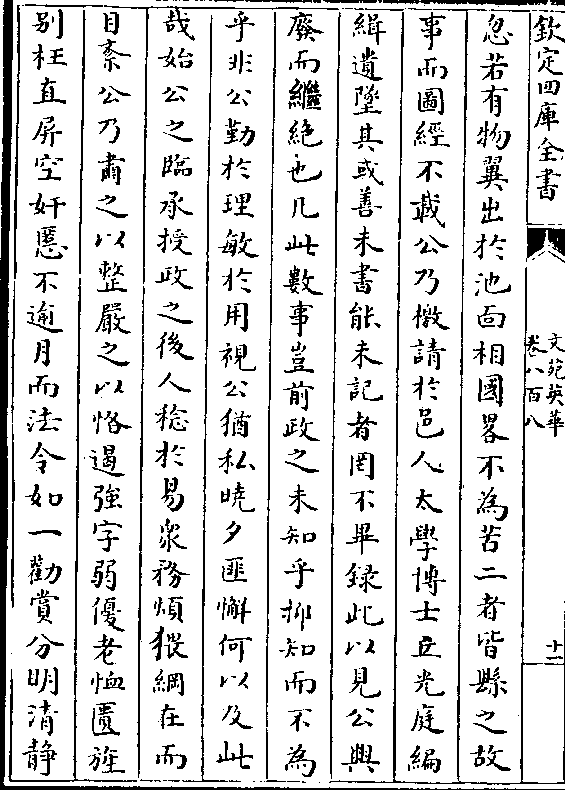 欽定四庫全書
文苑英華
卷八百八
十一
忽若有物翼出於池面相國畧不為苦二者皆縣之故
事而圖經不載公乃檄請於邑人太學博士丘光庭編
緝遺墜其或善未書能未記者罔不畢録此以見公興
廢而繼絶也凡此數事豈前政之未知乎抑知而不為
乎非公勤於理敏於用視公猶私曉夕匪懈何以及此
哉始公之臨承授政之後人稔於易衆務煩猥綱在而
目紊公乃肅之以整嚴之以恪遏強字弱優老恤匱旌
别枉直屏空奸慝不逾月而法令如一勸賞分明清静